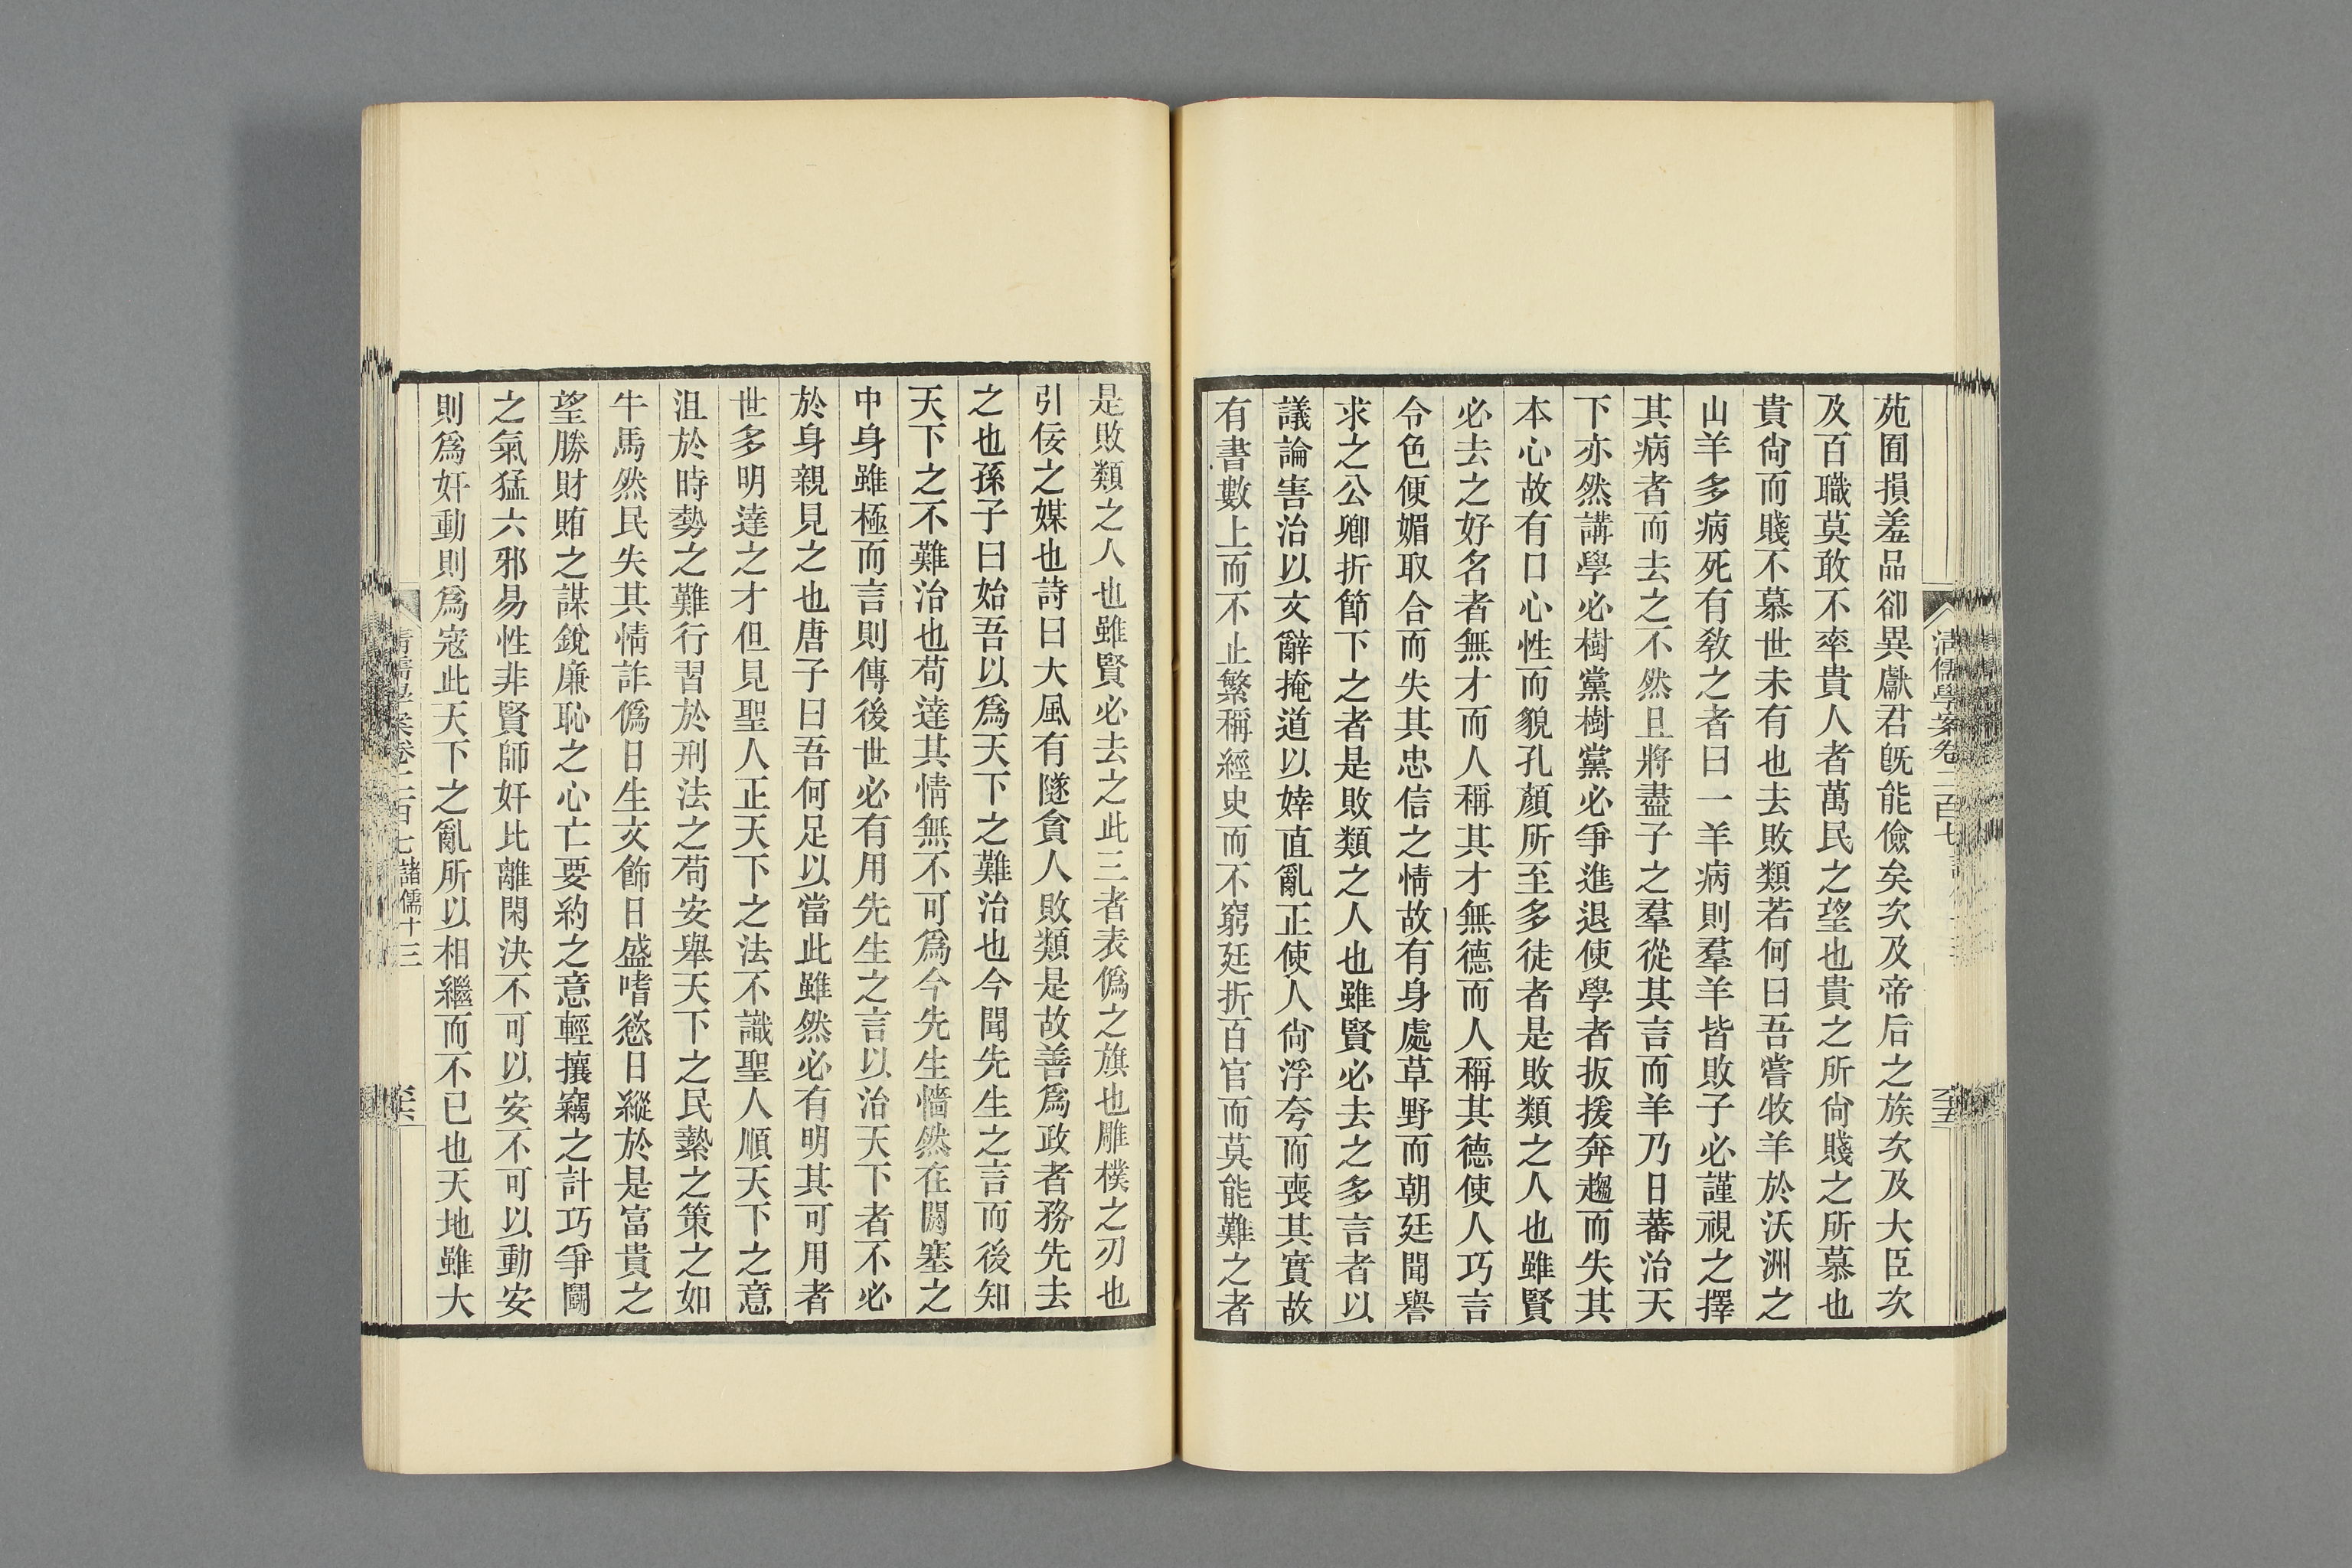 苑囿損羞品卻異獻君旣能儉矣次及帝后之族次及大臣次
及百職莫敢不率貴人者萬民之望也貴之所尙賤之所慕也
貴尙而賤不慕世未有也去敗類若何曰吾嘗牧羊於沃洲之
山羊多病死有敎之者曰一羊病則羣羊皆敗子必謹視之擇
其病者而去之不然且將盡子之羣從其言而羊乃日蕃治天
下亦然講學必樹黨樹黨必爭進退使學者扳援奔趨而失其
本心故有口心性而貌孔顏所至多徒者是敗類之人也雖賢
必去之好名者無才而人稱其才無德而人稱其德使人巧言
令色便媚取合而失其忠信之情故有身處草野而朝廷聞譽
求之公卿折節下之者是敗類之人也雖賢必去之多言者以
議論害治以文辭掩道以婞直亂正使人尙浮夸而喪其實故
有書數上而不止繁稱經史而不窮廷折百官而莫能難之者
是敗類之人也雖賢必去之此三者表僞之旗也雕樸之刃也
引佞之媒也詩曰大風有隧貪人敗類是故善爲政者務先去
之也孫子曰始吾以爲天下之難治也今聞先生之言而後知
天下之不難治也苟達其情無不可爲今先生懵然在闕塞之
中身雖極而言則傳後世必有用先生之言以治天下者不必
於身親見之也唐子曰吾何足以當此雖然必有明其可用者
世多明達之才但見聖人正天下之法不識聖人順天下之意
沮於時勢之難行習於刑法之苟安舉天下之民縶之策之如
牛馬然民失其情詐僞日生文飾日盛嗜慾日縱於是富貴之
望勝財賄之謀銳廉恥之心亡要約之意輕攘竊之計巧爭鬬
之氣猛六邪易性非賢師奸比離閑決不可以安不可以動安
則爲奸動則爲寇此天下之亂所以相繼而不已也天地雖大
清儒學案卷二百七
諸儒十三